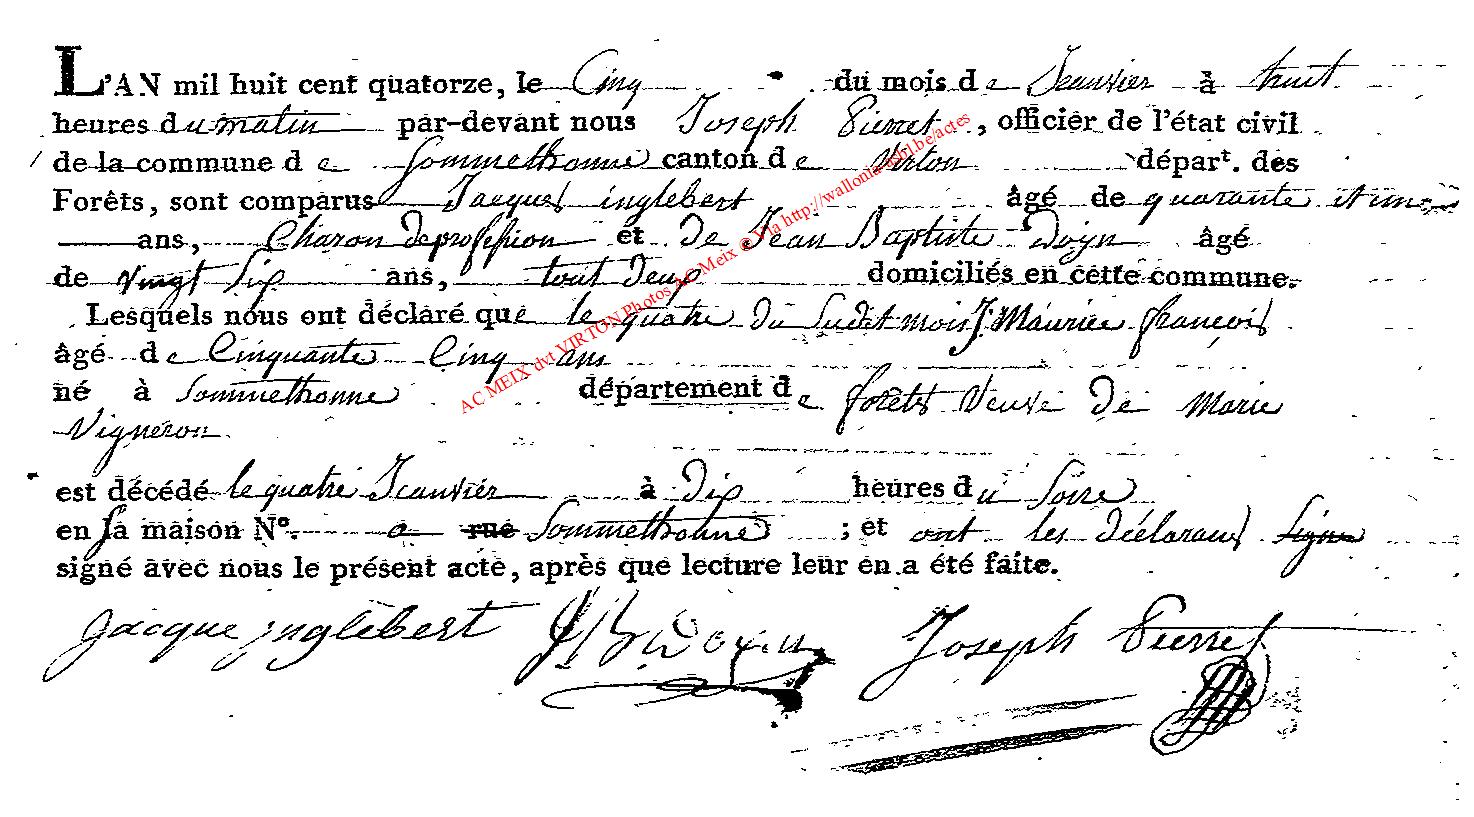 L'AN mil huit cent quatorze, le Cinq du mois de Jeanvier à huit
heures du matin par-devant nous Joseph Pierret, officier de l'état civil
de la commune de Sommethonne canton de Virton dépar^t. des
Forêts, sont comparus Jacques inglebert âgé de quarante et un
ans, Charon de profession et de Jean Baptiste Doyn âgé
de vingt six ans, tout deux domiciliés en cette commune.
Lesquels nous ont déclaré que le quatre du sudit mois J. Maurice françois
âgé de Cinquante Cinq ans
né à Sommethonne département de forêts veuve de Marie
Vigneron
est décédé le quatre Jeanvier à dix heures du Soire
en sa maison N°. a rue Sommethonne ; et ont les déclarans signe
signé avec nous le présent acte, après que lecture leur en a été faite.
jacque jnglebert JB Doyn Joseph Pierret
AC MEIX dvt VIRTON Photos AC Meix © Via http://wallonia-asbl.be/actes